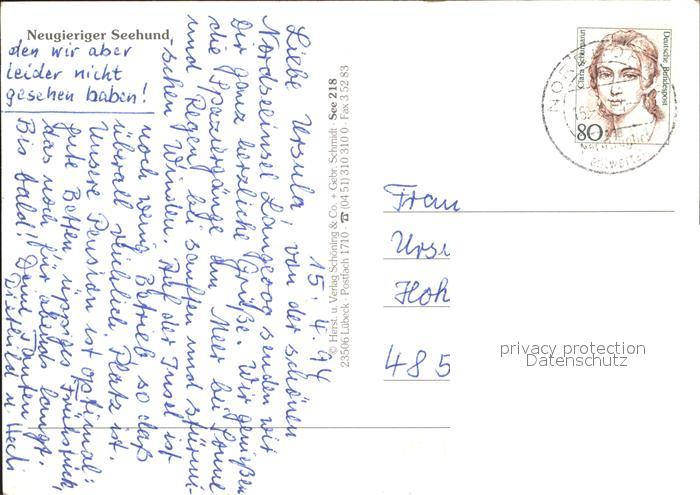 Neugieriger Seehund
den wir aber
leider nicht
gesehen haben!
15.4.94
Liebe Ursula, von der schönen
Nordseeinsel Langeoog senden wir
Dir ganz herzliche Grüße. Wir genießen
die Spaziergänge am Meer bei Sonne
und Regen, bei sanften und stürmi-
schen Winden. Auf der Insel ist
noch wenig Betrieb, so daß
überall reichlich Platz ist.
Unsere Pension ist optimal:
gute Betten, üppiges Frühstück,
das noch für abends langt.
Bis bald! Deine Tanten
Diethild u.
© Herst. u. Verlag Schöning & Co. + Gebr. Schmidt · See 218
23506 Lübeck · Postfach 1710 · ☎ (04 51) 310 310 0 · Fax 3 52 83
Clara Schumann
Deutsche Bundespost
80
Frau
Urs
Hoh
485
privacy protection
Datenschutz